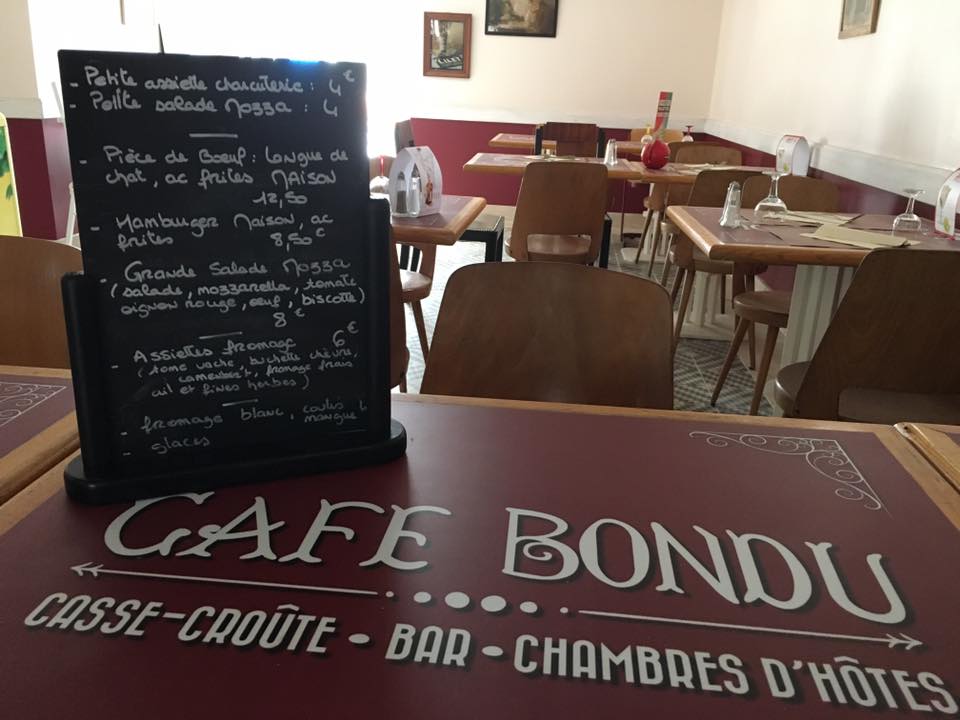 - Petite assiette charcuterie : 4€
- Petite salade Mozza : 4
- Pièce de Bœuf : Langue de
chat, ac frites MAISON
12,50
- Hamburger Maison, ac
frites 8,50€
- Grande Salade Mozza
(salade, mozzarella, tomate
oignon rouge, œuf, biscotte)
8€
- Assiettes fromage 6€
(tome vache, buchette chèvre,
camembert, fromage frais
ail et fines herbes)
- fromage blanc, coulis
mangue
- glaces
CAFE BONDU
CASSE-CROÛTE • BAR • CHAMBRES D'HÔTES